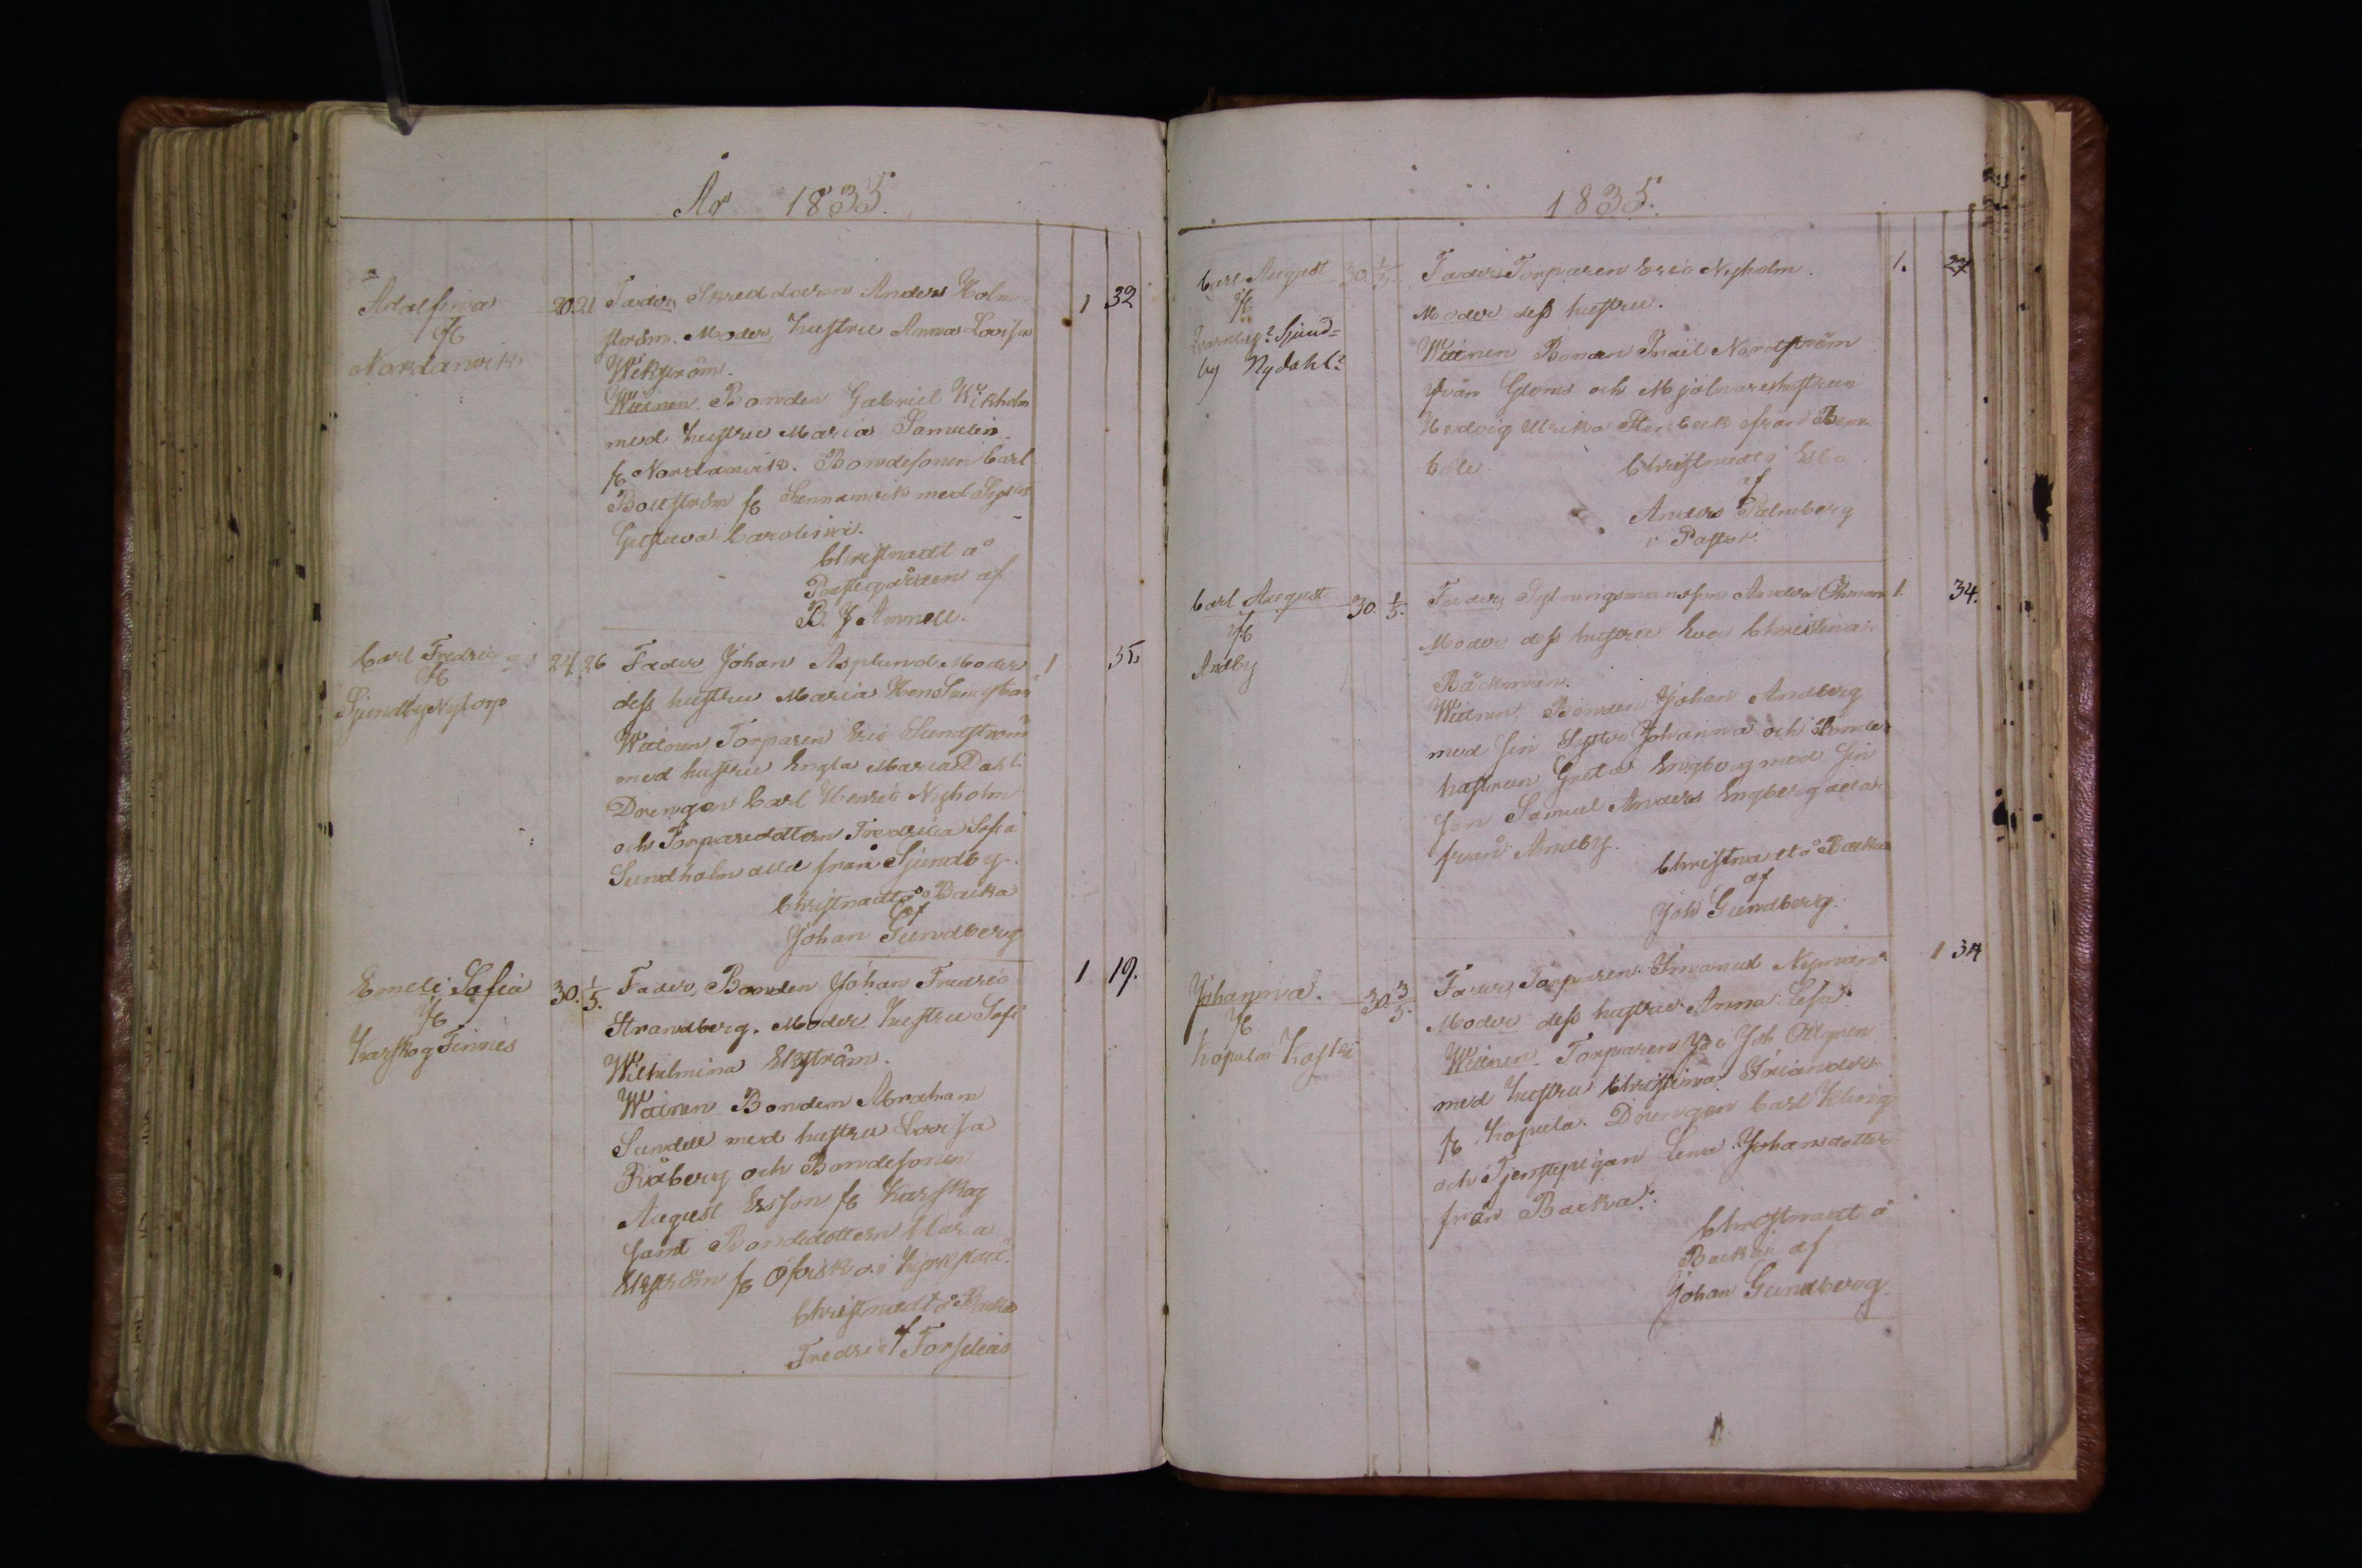 År 1835.
Adolfina
fr
Nordanvik
20. 21
Fader, Skreddaren Anders Holm-
ström. Moder, hustru Anna Lovisa
Wikström.
Wittnen Bonden Gabriel Wikholm
med hustru Maria Samulin
fr Nordanvik. Bondesonen Carl
Boström fr Sunnanvik med Syster
Gustava Carolina.
Christnadt å
Prestegården af
B. J. Annell.
1 32
Carl Fredric
fr
Sjundby Nytorp
24 26
Fader Johan Asplund Moder
dess hustru Maria
Wittnen, Torparen Eric Sundström
med hustru Engla Maria Dahl.
Drengen Carl Henric Nyholm
och Torparedottern Fredrica Sofia
Sundholm alla från Sjundby.
Christnadt å Backa
af
Johan Gundberg
1 35
Emeli Sofia
fr
Karskog Finnes
30. 1/5.
Fader, Bonden Johan Fredric
Strandberg. Moder hustru Sofi
Wilhelmina Ekström.
Wittnen Bonden Abraham
Sundell med hustru Lovisa
Råberg och Bondesonen
August Ersson fr Karskog
samt Bondedottern Clara
Ekström fr i Kyrkslätt.
Christnadt å Backa
af
Fredric Forselius
1 19.
1835.
Carl August
fr
Qvarnby? Sjund=
by Nydahl?
30. 1/5.
Fader Torparen Eric Nyholm.
Moder dess hustru.
Wittnen Bonden Israil Nordström
från Gloms och Mjölnarehustrun
Hedvig Ulrika Stenbeck från Bem
böle
Christnadt i Esbo
af
Anders Palmberg
v. Pastor.
1. 27
Carl August
fr
Andby
30. 1/5.
Fader, Sytningsmansson Anders Öhman
Moder dess hustru Eva Christina
Bäckman.
Wittnen, Bonden Johan Andberg
med sin Syster Johanna och Bonde
hustrun Greta Engberg med sin
son Samuel Anders Engberg alla
från Andby.
Christnadt å Backa
af
Joh Gundberg.
1. 34.
Johanna.
fr
Kopula Koski
30. 3/5.
Fader, Torparen Immanuel Nyman
Moder dess hustru Anna Lesa.
Wittnen Torparen Joh
med hustru Christina Friander
fr Kopula. Drengen Carl Kling
och Tjenstepigan Lena Johansdotter
från Backa.
Christnadt å
Backa af
Johan Gundberg.
1 34